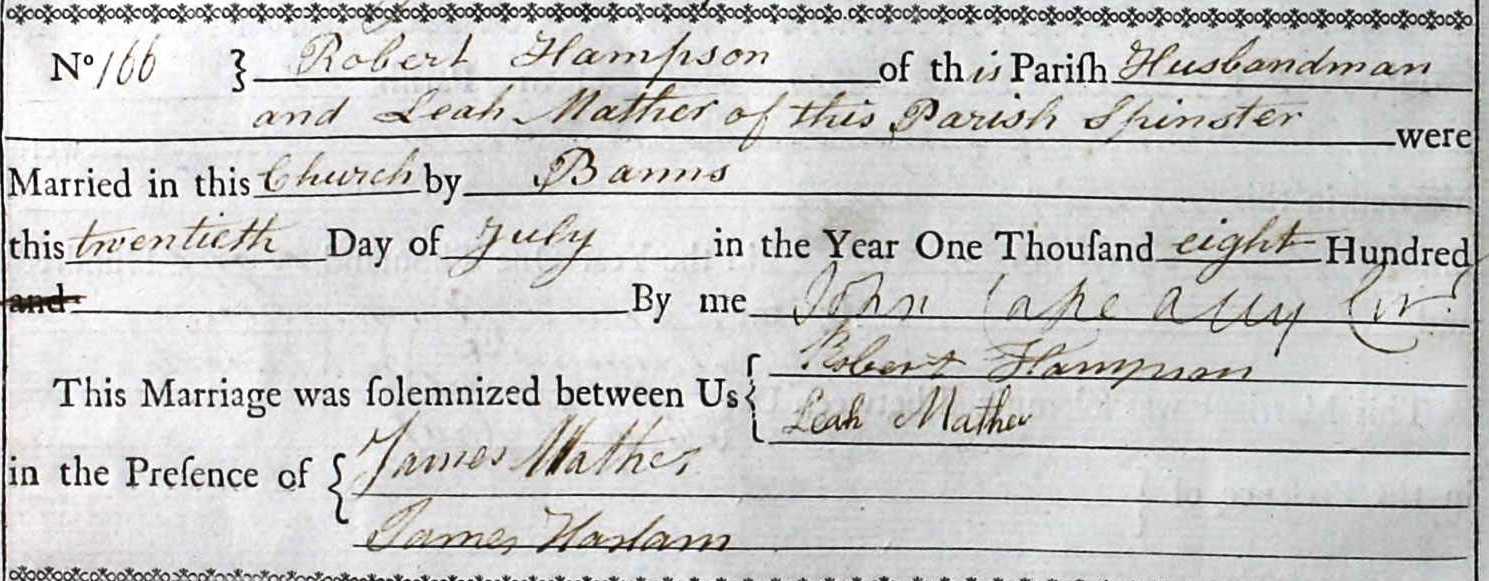 Nº 166 } Robert Hampson of this Pariſh Husbandman
and Leah Mather of this Parish Spinster were
Married in this Church by Banns
this twentieth Day of July in the Year One Thouſand eight Hundred
and By me John
This Marriage was ſolemnized between Us { Robert Hampson
Leah Mather
in the Preſence of { James Mather
James Haslam